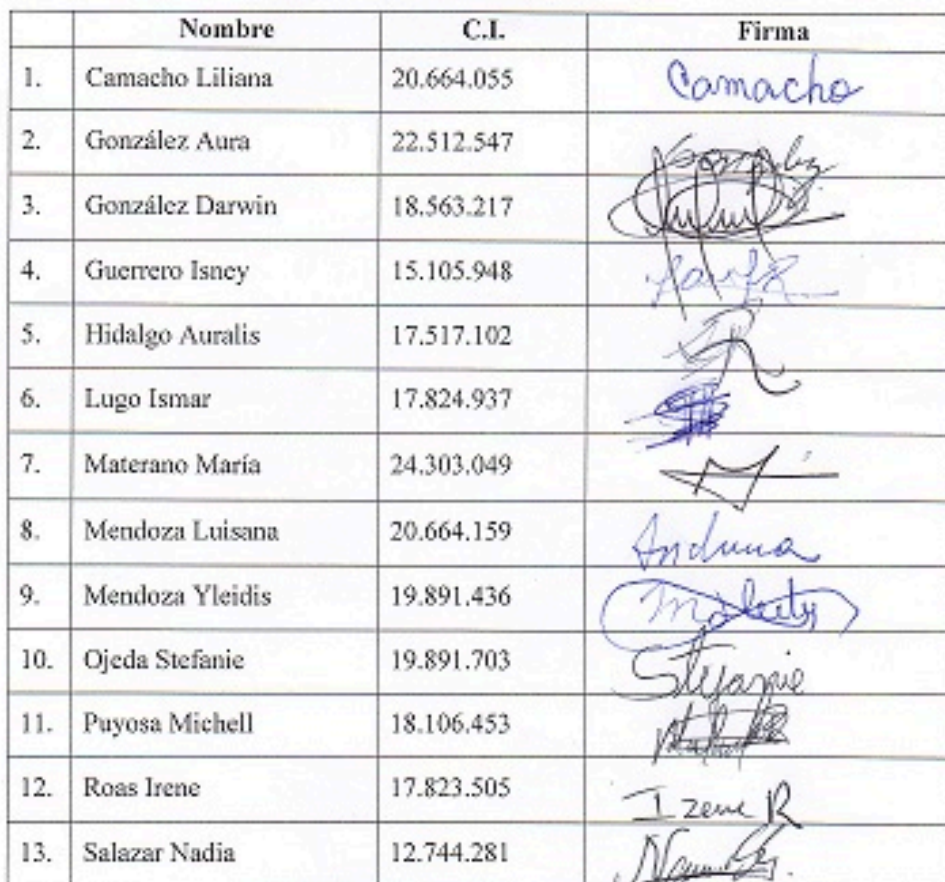 Nombre C.I. Firma
1. Camacho Liliana 20.664.055 Camacho
2. González Aura 22.512.547 González
3. González Darwin 18.563.217
4. Guerrero Isney 15.105.948
5. Hidalgo Auralis 17.517.102
6. Lugo Ismar 17.824.937
7. Materano María 24.303.049
8. Mendoza Luisana 20.664.159
9. Mendoza Yleidis 19.891.436
10. Ojeda Stefanie 19.891.703 Stefanie
11. Puyosa Michell 18.106.453
12. Roas Irene 17.823.505 Irene R
13. Salazar Nadia 12.744.281